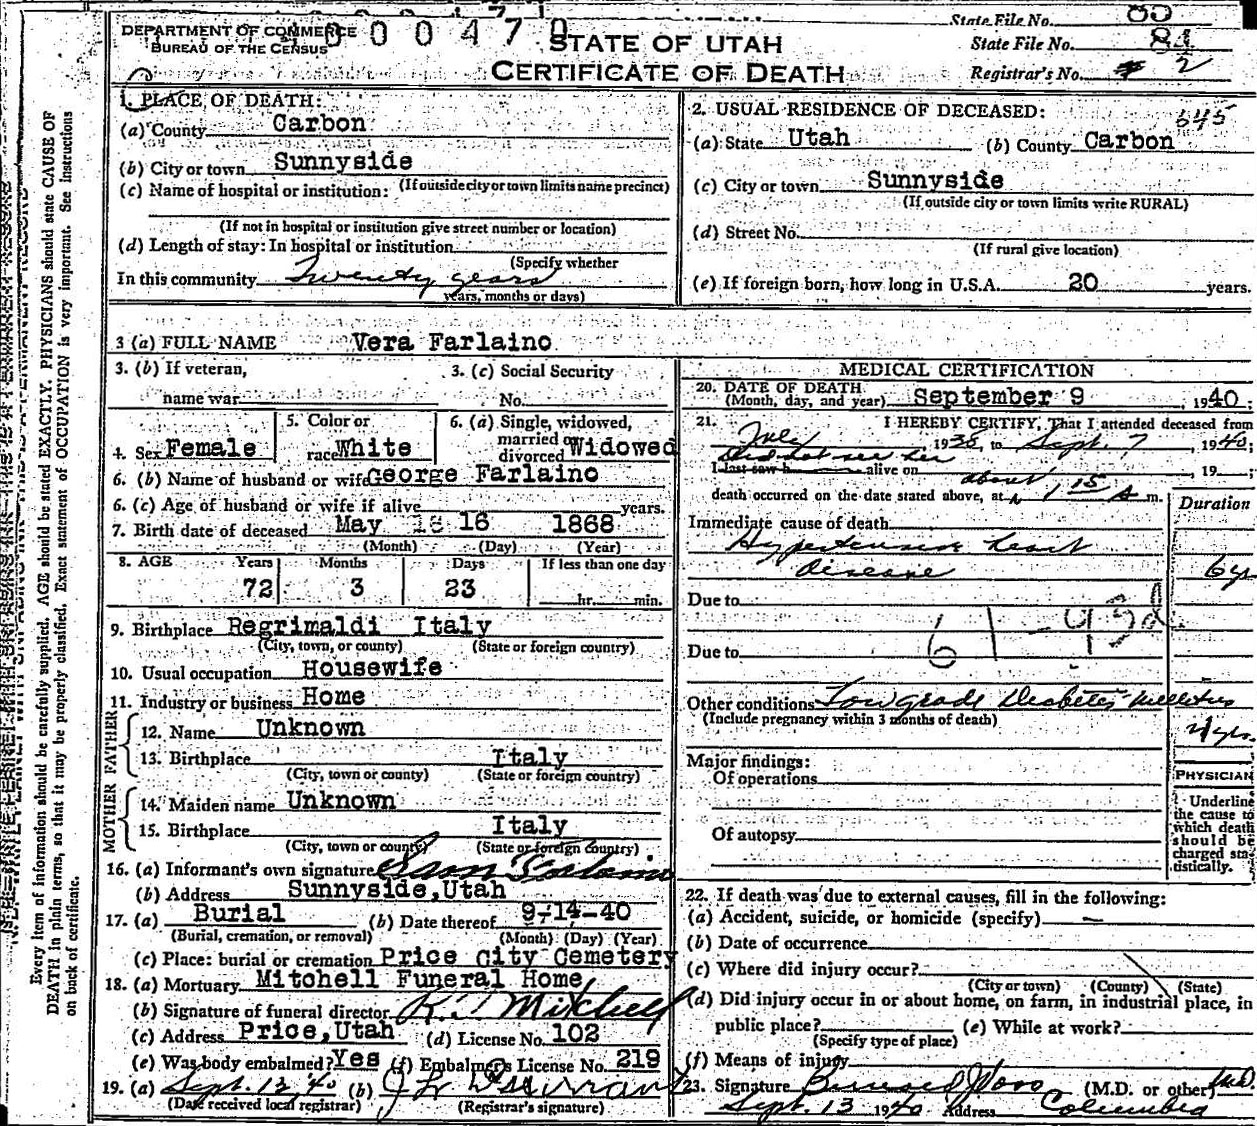 DEPARTMENT OF COMMERCE
BUREAU OF THE CENSUS
000470
STATE OF UTAH
CERTIFICATE OF DEATH
State File No. 85
State File No. 84
Registrar's No. 2
Every item of information should be carefully supplied. AGE should be stated EXACTLY. PHYSICIANS should state CAUSE OF
DEATH in plain terms, so that it may be properly classified. Exact statement of OCCUPATION is very important. See Instructions
on back of certificate.
1. PLACE OF DEATH:
(a) County Carbon
(b) City or town Sunnyside
(If outside city or town limits name precinct)
(c) Name of hospital or institution:
(If not in hospital or institution give street number or location)
(d) Length of stay: In hospital or institution
(Specify whether
In this community Twenty years
years, months or days)
2. USUAL RESIDENCE OF DECEASED:
645
(a) State Utah (b) County Carbon
(c) City or town Sunnyside
(If outside city or town limits write RURAL)
(d) Street No.
(If rural give location)
(e) If foreign born, how long in U.S.A. 20 years.
3 (a) FULL NAME Vera Farlaino
3. (b) If veteran, name war
3. (c) Social Security No.
4. Sex Female
5. Color or race White
6. (a) Single, widowed, married or divorced Widowed
6. (b) Name of husband or wife George Farlaino
6. (c) Age of husband or wife if alive years.
7. Birth date of deceased May 16 1868
(Month) (Day) (Year)
8. AGE Years Months Days If less than one day
72 3 23 hr. min.
9. Birthplace Regrimaldi Italy
(City, town, or county) (State or foreign country)
10. Usual occupation Housewife
11. Industry or business Home
FATHER
12. Name Unknown
13. Birthplace Italy
(City, town or county) (State or foreign country)
MOTHER
14. Maiden name Unknown
15. Birthplace Italy
(City, town or county) (State or foreign country)
16. (a) Informant's own signature Sam Farlaino
(b) Address Sunnyside,Utah
17. (a) Burial (b) Date thereof 9-14-40
(Burial, cremation, or removal) (Month) (Day) (Year)
(c) Place: burial or cremation Price City Cemetery
18. (a) Mortuary Mitchell Funeral Home
(b) Signature of funeral director Mitchell
(c) Address Price,Utah (d) License No. 102
(e) Was body embalmed? Yes (f) Embalmer's License No. 219
19. (a) Sept. 13 '40 (b)
(Date received local registrar) (Registrar's signature)
MEDICAL CERTIFICATION
20. DATE OF DEATH
(Month, day, and year) September 9, 1940;
21. I HEREBY CERTIFY, That I attended deceased from
July 1938, to Sept. 7, 1940;
Did not see her
I last saw h alive on , 19 ;
about
death occurred on the date stated above, at 1 15 A m.
Duration
Immediate cause of death
Hypertensive heart
disease 6 yr
Due to
61 - 93d
Due to
Other conditions Low grade Diabetes mellitus
(Include pregnancy within 3 months of death)
yrs.
Major findings:
Of operations
Of autopsy
PHYSICIAN
Underline
the cause to
which death
should be
charged sta-
tistically.
22. If death was due to external causes, fill in the following:
(a) Accident, suicide, or homicide (specify) —
(b) Date of occurrence
(c) Where did injury occur?
(City or town) (County) (State)
(d) Did injury occur in or about home, on farm, in industrial place, in
public place? (e) While at work?
(Specify type of place)
(f) Means of injury
23. Signature (M.D. or other) M.D.
Sept. 13 1940 Address Columbia